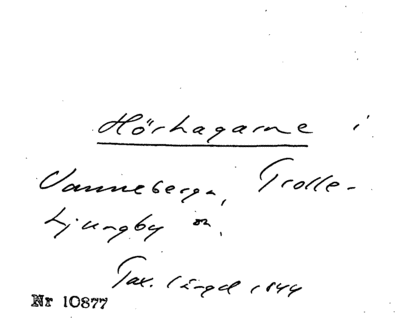 Hörhagarne i
Vanneberga, Trolle-
Ljungby sn.
Tax. längd 1844
Nr 10877